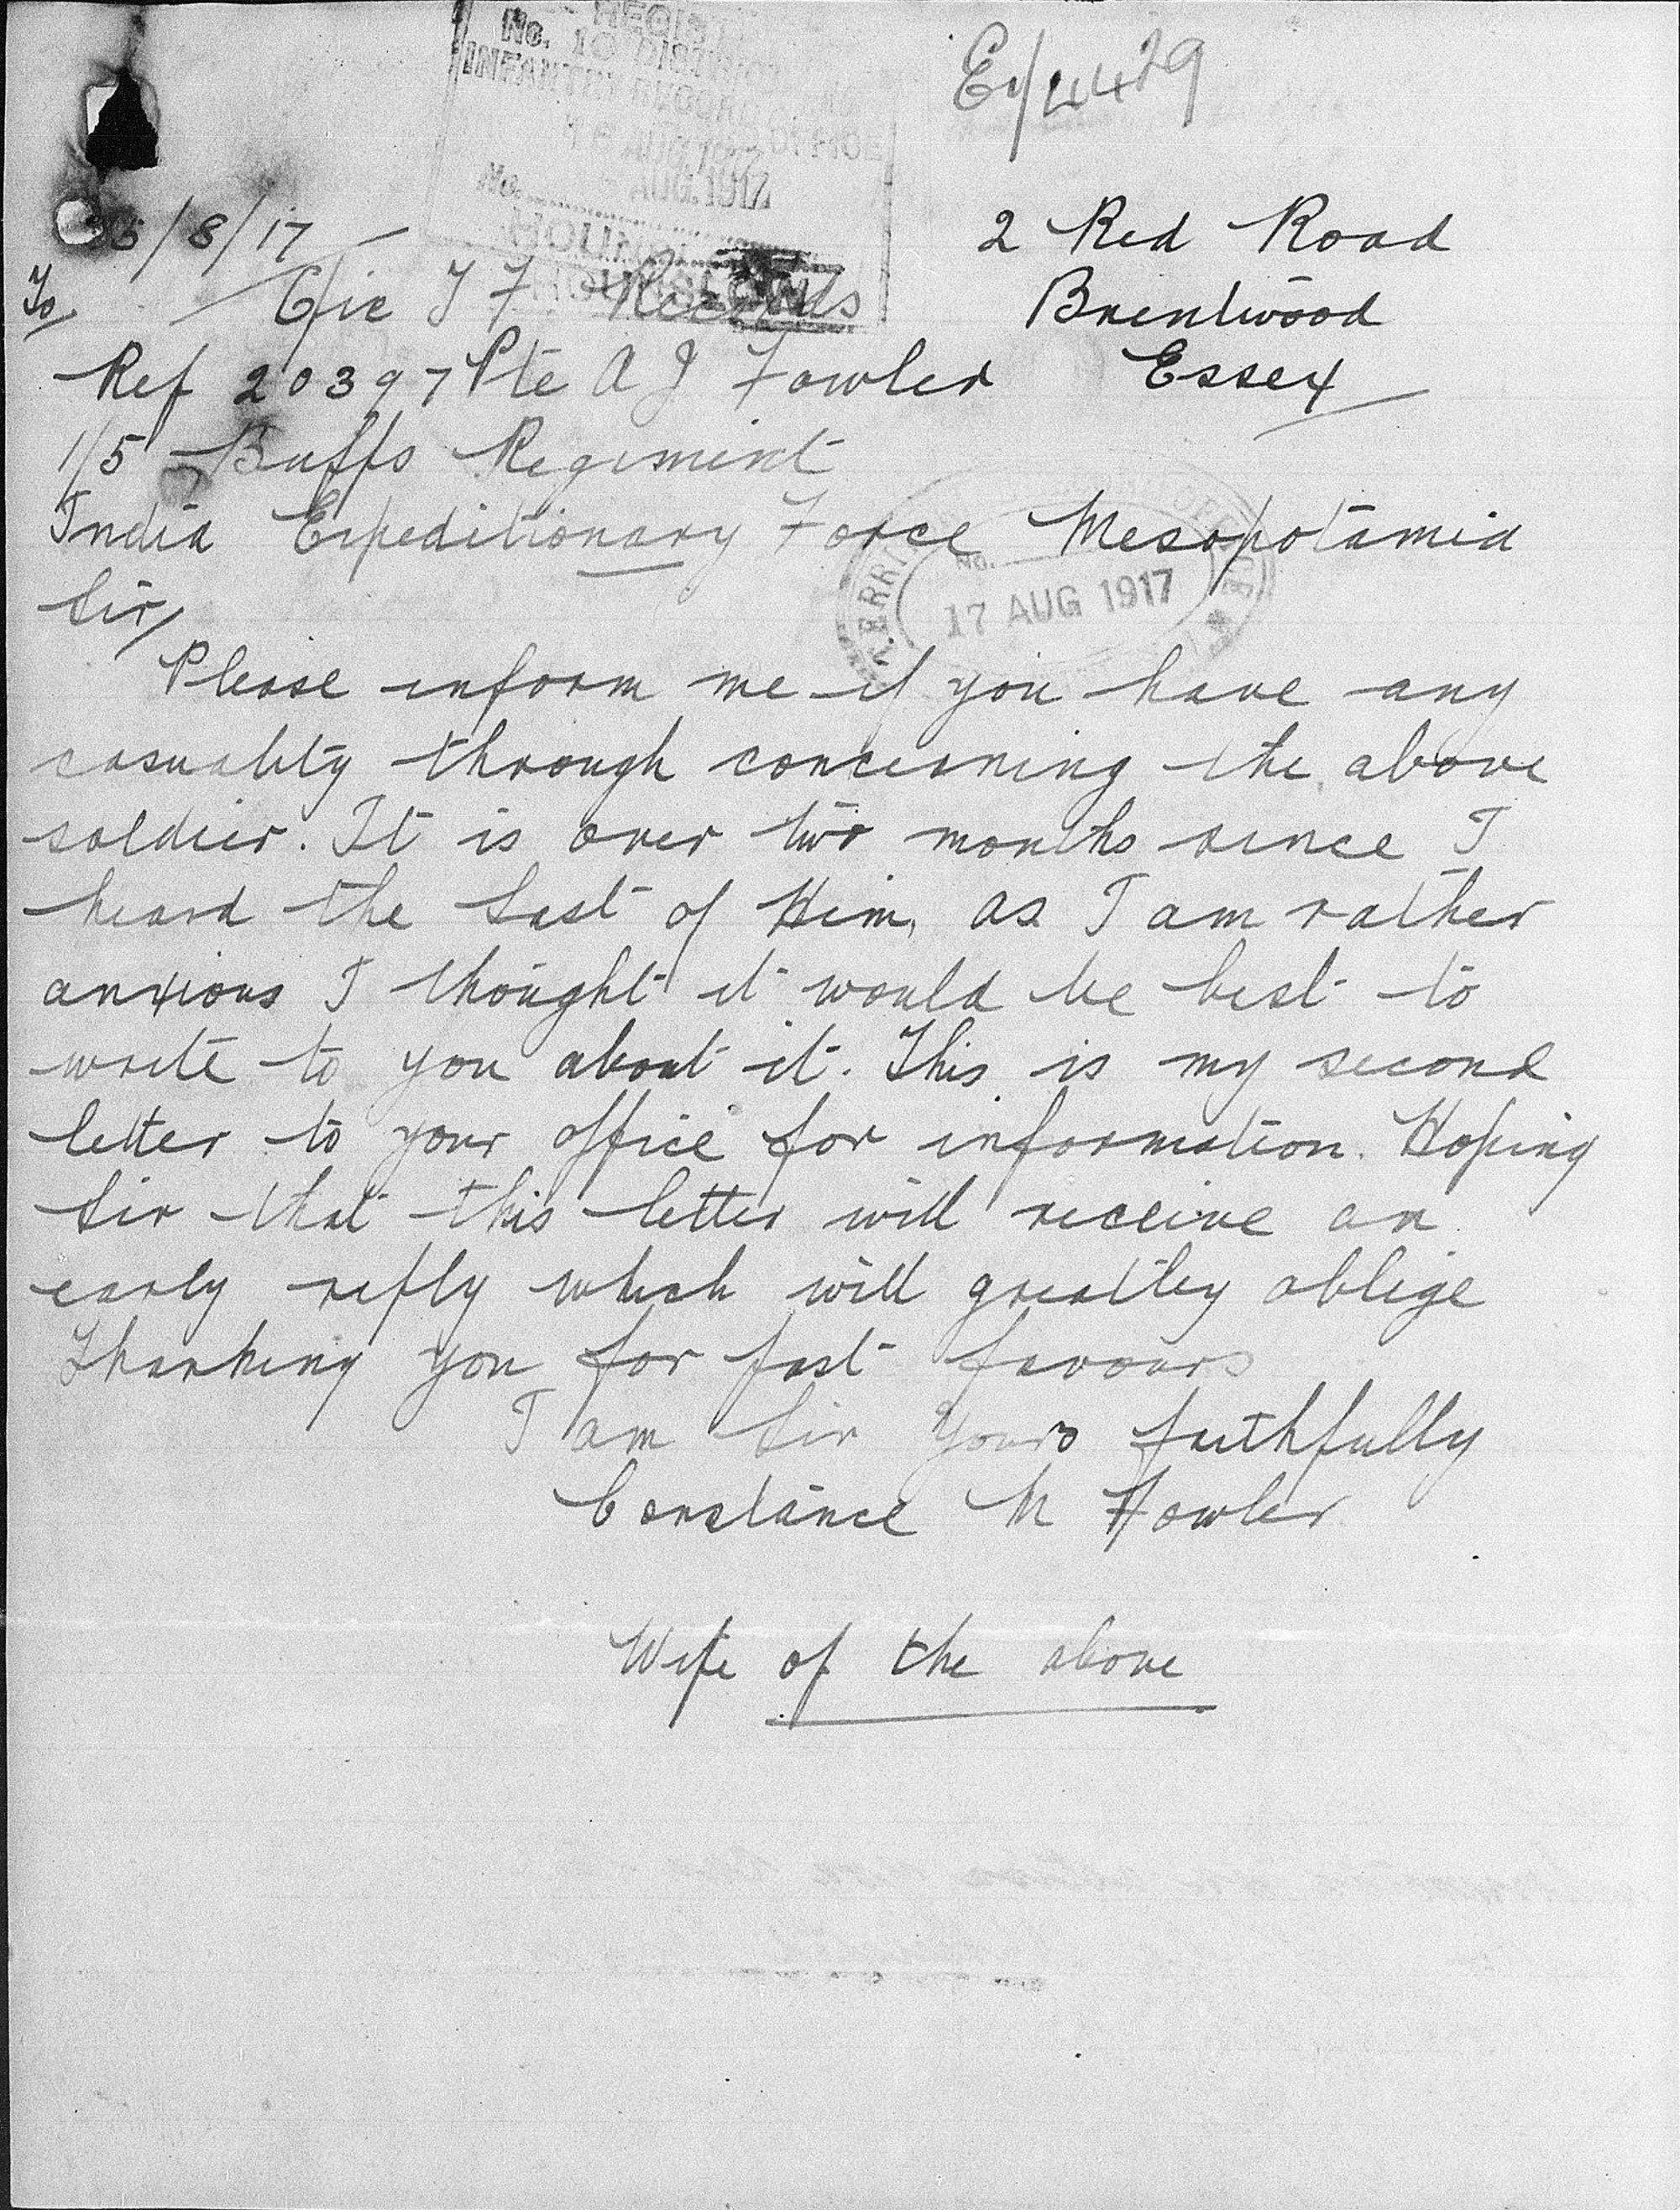 REGIST
No. 10 DISTRICT
INFANTRY RECORD OFFICE
16 AUG. 1917
AUG. 1917
No.
HOUNSLOW
HOUNSLOW
/8/17
2 Red Road
To O/ic T F Records
Brentwood
Ref 20397 Pte A J Fowler
Essex
1/5 Buffs Regiment
India Expeditionary Force Mesopotamia
No.
17 AUG 1917
Sir/
Please inform me if you have any
casuality through concerning the above
soldier. It is over two months since I
heard the last of Him, as I am rather
anxious I thought it would be best to
write to you about it. This is my second
letter to your office for information. Hoping
Sir that this letter will receive an
early reply which will greatley oblige
Thanking you for past favours
I am Sir Yours faithfully
Constance M Fowler
Wife of the above